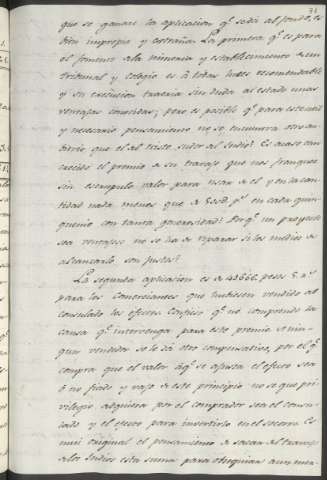 31
que se ganare la aplicacion qe. se dá al fondo, es
bien impropia y extraña. La primera qe. es para
el fomento a la mineria y establecimiento de un
tribunal y colegio es á todas luces recomendable
y su execucion traeria sin duda al estado unas
ventajas conocidas; pero es posible qe. para este util
y necesario pensamiento no se encuentra otro ar-
bitrio que el al triste sudor al Indio? Es acaso tan
crecido el premio a su trabajo que nos franquea
sin escrupulo valor para usar de el y en la can-
tidad nada menos que de ps. en cada quin-
quenio con tanta generosidad? Porqe. un proyecto
sea ventajoso no se ha de reparar si los medios de
alcanzarlo son justos?
La segunda aplicacion es de pesos
para los Comerciantes que hubiesen vendido al
consulado los efectos. Confieso qe. no comprendo la
causa qe. intervenga para este premio. A nin-
gun vendedor se le dá otro compensativo, por el qe.
compra que el valor áqe. se ajusta el efecto sea
ó no fiado y vajo de este principio no se que pri-
vilegio adquiera por el comprador sea el consu-
lado y el efecto para invertirlo en el socorro. Es
mui original el pensamiento de sacar al travajo
a los Indios esta suma para obsequiar aun mer-